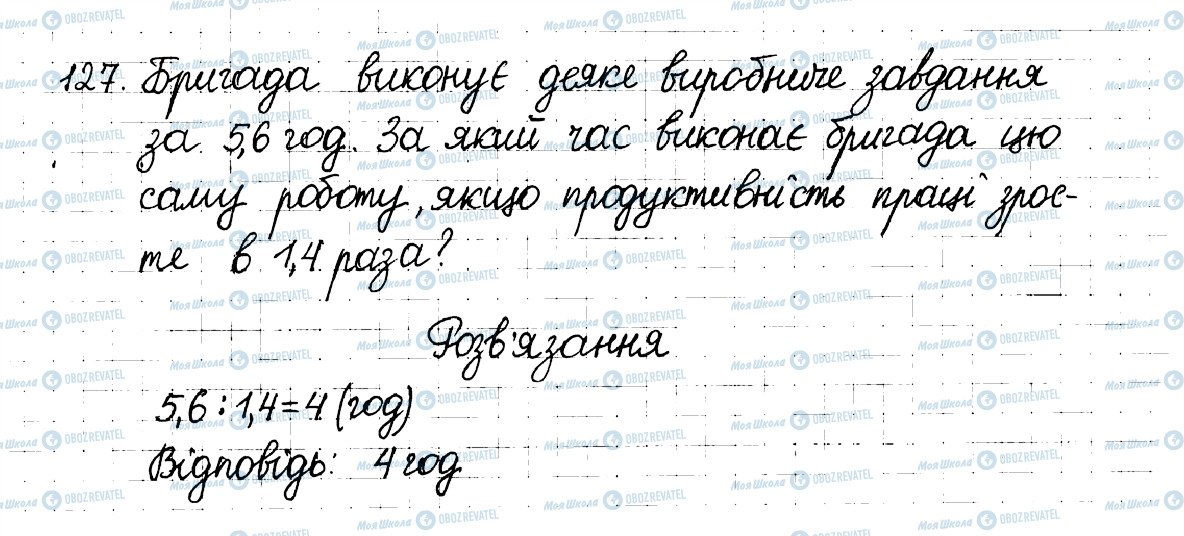 127. Бригада виконує деяке виробниче завдання
за 5,6 год. За який час виконає бригада цю
саму роботу, якщо продуктивність праці зрос-
те в 1,4 раза?
Розв'язання
5,6 : 1,4 = 4 (год)
Відповідь: 4 год.